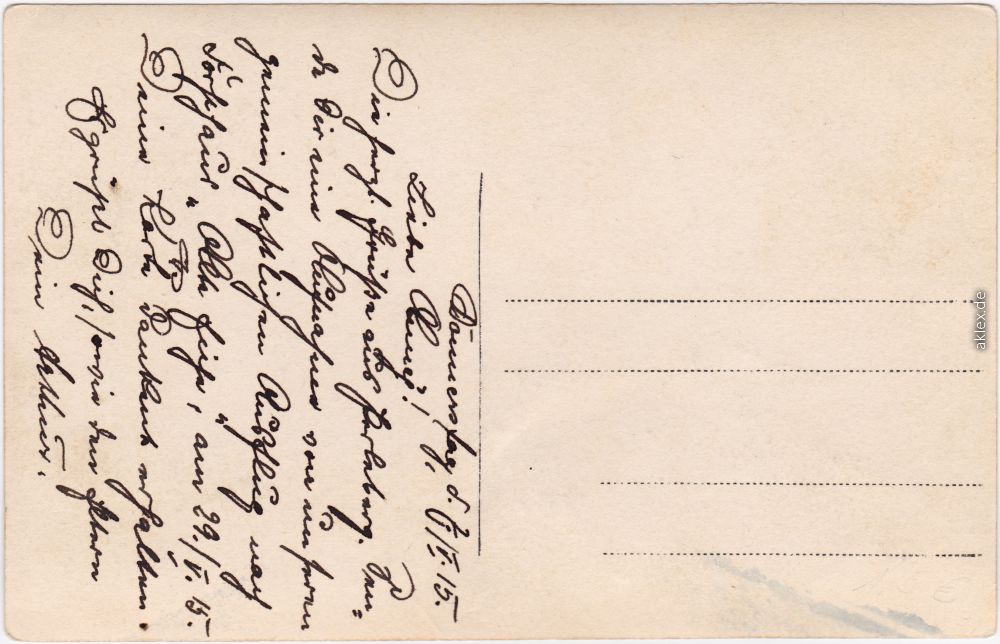 Donnerstag d. 6./V. 15.
Liebe Anne!
Die herzl. Grüße aus Perleberg. Sen-
de Dir eine Aufnahme von unseren
gemeinschaftlichen Ausflug nach
Forsthaus „Alte Eiche“, am 29./V. 15.
Deine Karte dankend erhalten.
Es grüßt Dich, sowie den Eltern
Dein Arthur.
aklex.de